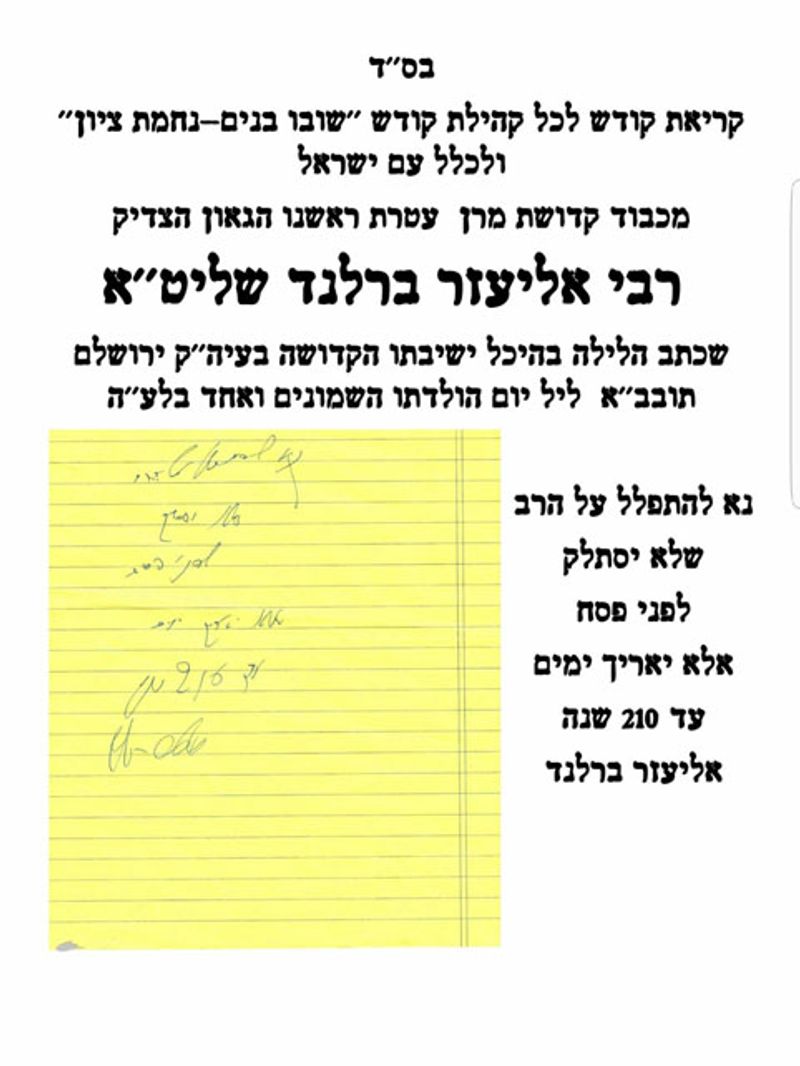 בס״ד
קריאת קודש לכל קהילת קודש ״שובו בנים–נחמת ציון״
ולכלל עם ישראל
מכבוד קדושת מרן עטרת ראשנו הגאון הצדיק
רבי אליעזר ברלנד שליט״א
שכתב הלילה בהיכל ישיבתו הקדושה בעיה״ק ירושלם
תובב״א ליל יום הולדתו השמונים ואחד בלע״ה
נא להתפלל על הרב
שלא יסתלק
לפני פסח
אלא יאריך ימים
עד 210 שנה
אליעזר ברלנד